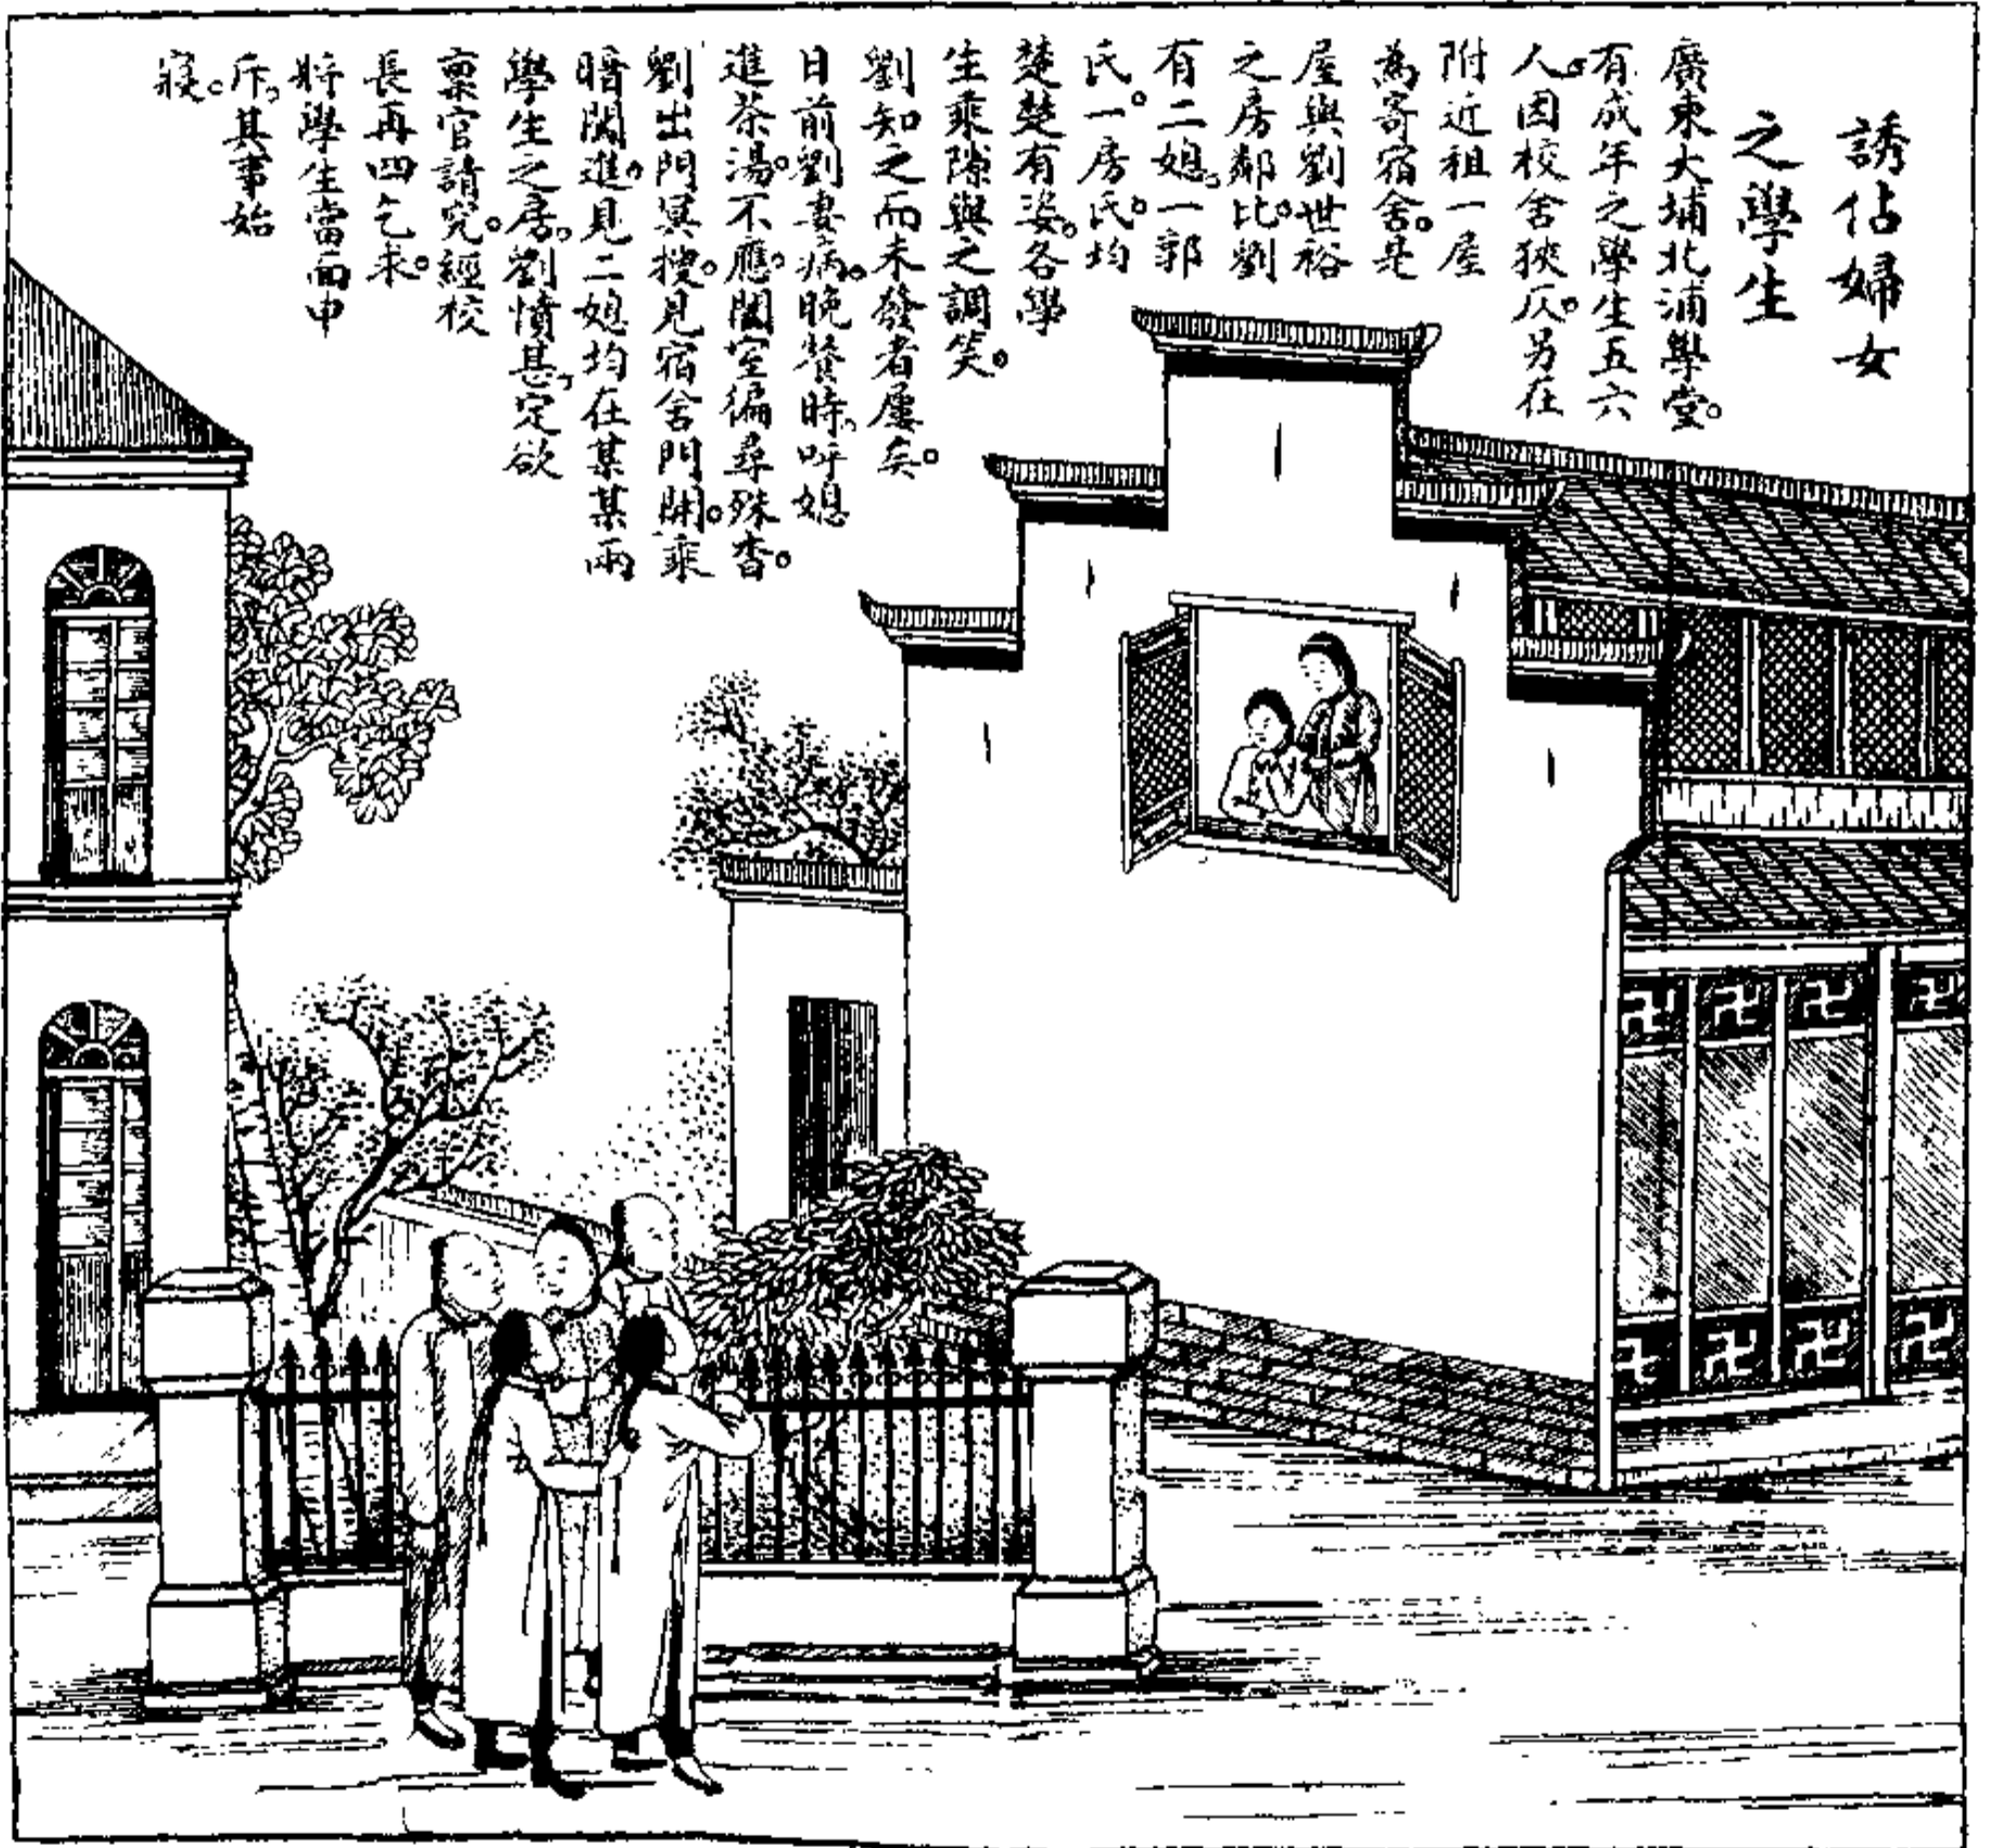 誘佔婦女
之學生
廣東大埔北浦學堂。
有成年之學生五六
人。因校舍狹仄。另在
附近租一屋
為寄宿舍。是
屋與劉世裕
之房鄰比。劉
有二媳。一郭
氏。一房氏。均
楚楚有姿。各學
生乘隙與之調笑。
劉知之而未發者屢矣。
日前劉妻病。晚餐時。呼媳
進茶湯。不應。闔室徧尋殊杳。
劉出門冥搜。見宿舍門開。乘
暗闖進。見二媳均在某某兩
學生之房。劉憤甚。定欲
稟官請究。經校
長再四乞求。
將學生當面申
斥。其事始
寢。